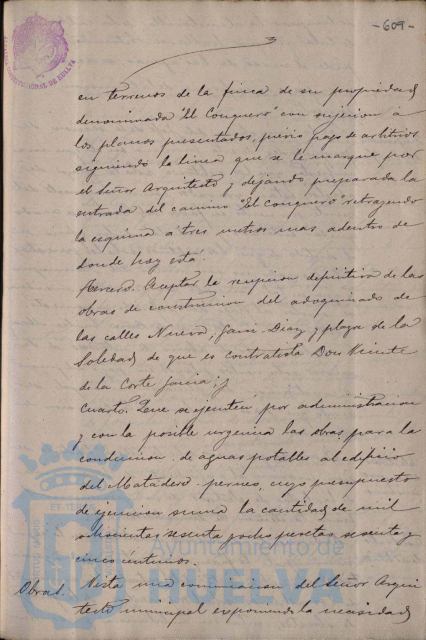 -609-
en terrenos de la finca de su propiedad
denominada "El Conquero" con sujecion á
los planos presentados, previo pago de arbitrios
siguiendo la linea que se le marque por
el Señor Arquitecto y dejando preparada la
entrada del camino "El Conquero" retrayendo
la esquina á tres metros mas adentro de
donde hoy está.
Tercero. Aceptar la recepcion definitiva de las
obras de construccion del adoquinado de
las calles Nueva, Garci-Diaz y plaza de la
Soledad de que es contratista Don Vicente
de la Corte Garcia; y
Cuarto. Que se ejecuten por administracion
y con la posible urgencia las obras para la
conduccion de aguas potables al edificio
del Matadero cuyo presupuesto
de ejecucion suma la cantidad de mil
ochocientas sesenta y ocho pesetas sesenta y
cinco céntimos.
Obras. Vista una comunicacion del Señor Arqui
tecto municipal exponiendo la necesidad
Ayuntamiento de
HUELVA